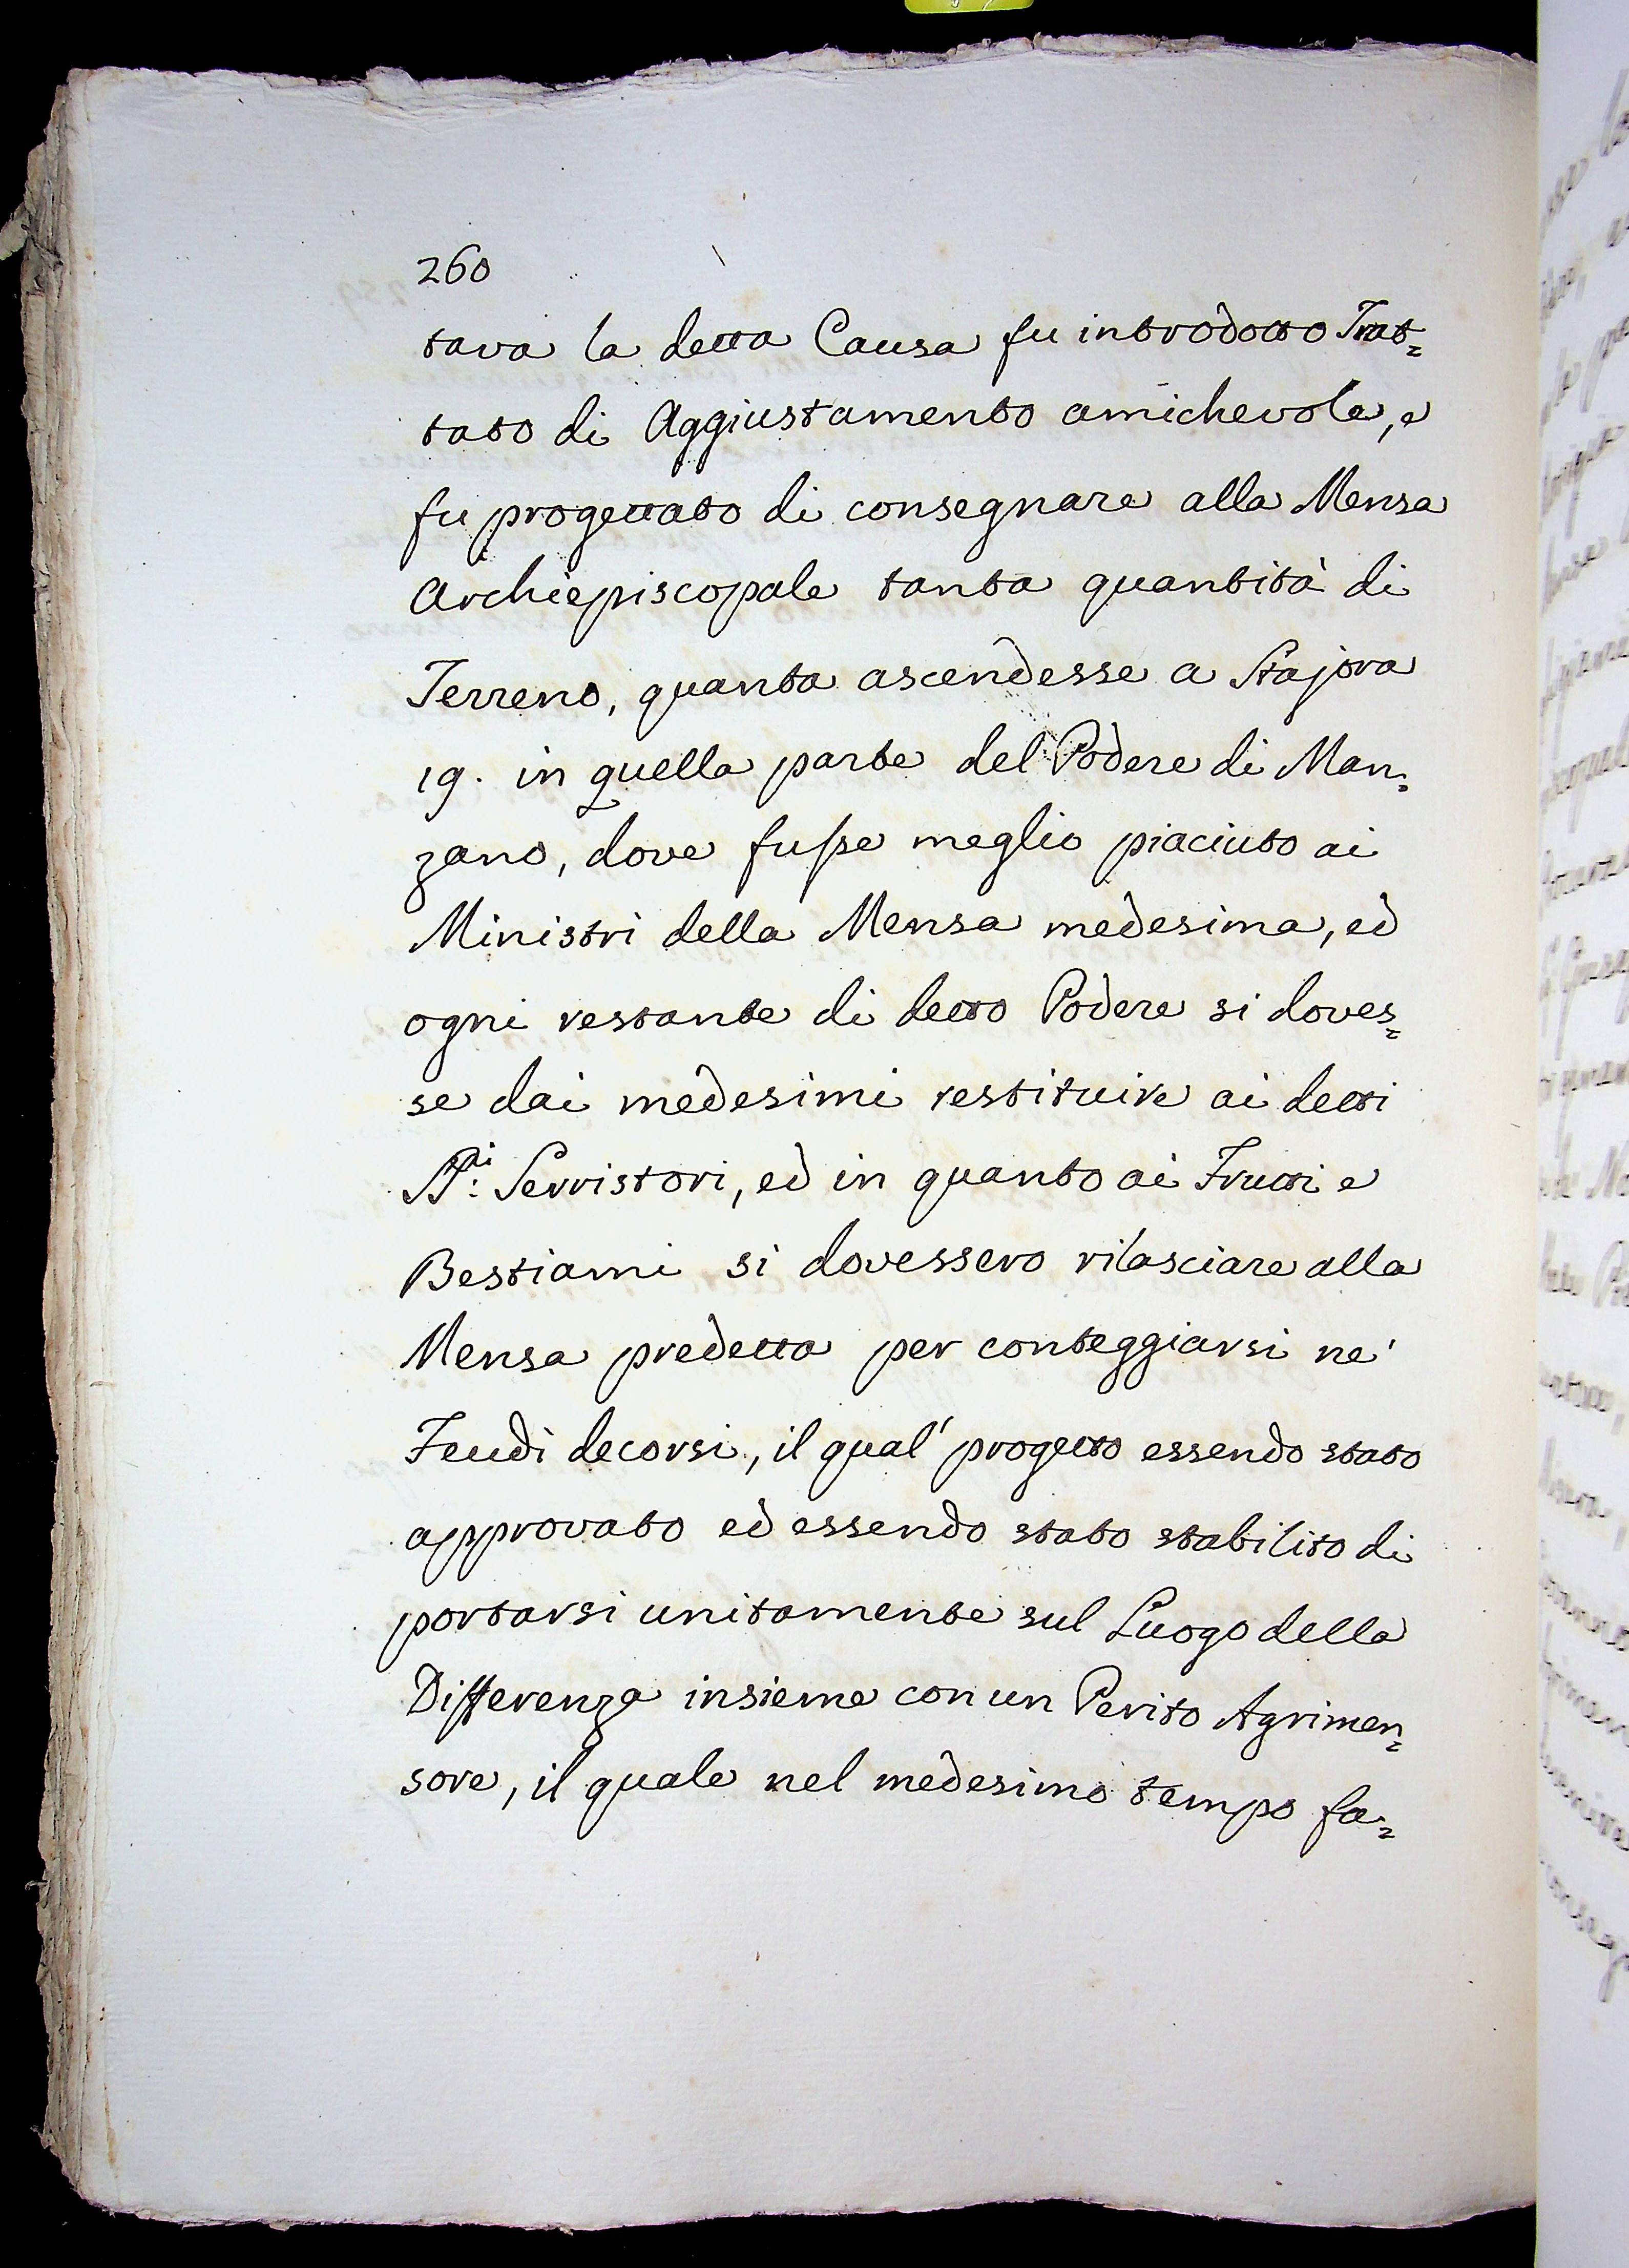 260
tava la detta Causa fu introdotto Trat=
tato di Aggiustamento amichevole, e
fu progettato di consegnare alla Mensa
Archiepiscopale tanta quantità di
Terreno, quanta ascendesse a Stajora
19. in quella parte del Podere di Man=
zano, dove fusse meglio piaciuto ai
Ministri della Mensa medesima, ed
ogni restante di detto Podere si doves=
se dai medesimi restituire ai detti
SS.ri Serristori, ed in quanto ai Frutti e
Bestiami si dovessero rilasciare alla
Mensa predetta per conteggiarsi ne'
Feudi decorsi, il qual' progetto essendo stato
approvato ed essendo stato stabilito di
portarsi unitamente sul Luogo della
Differenza insieme con un Perito Agrimen=
sore, il quale nel medesimo tempo fa=